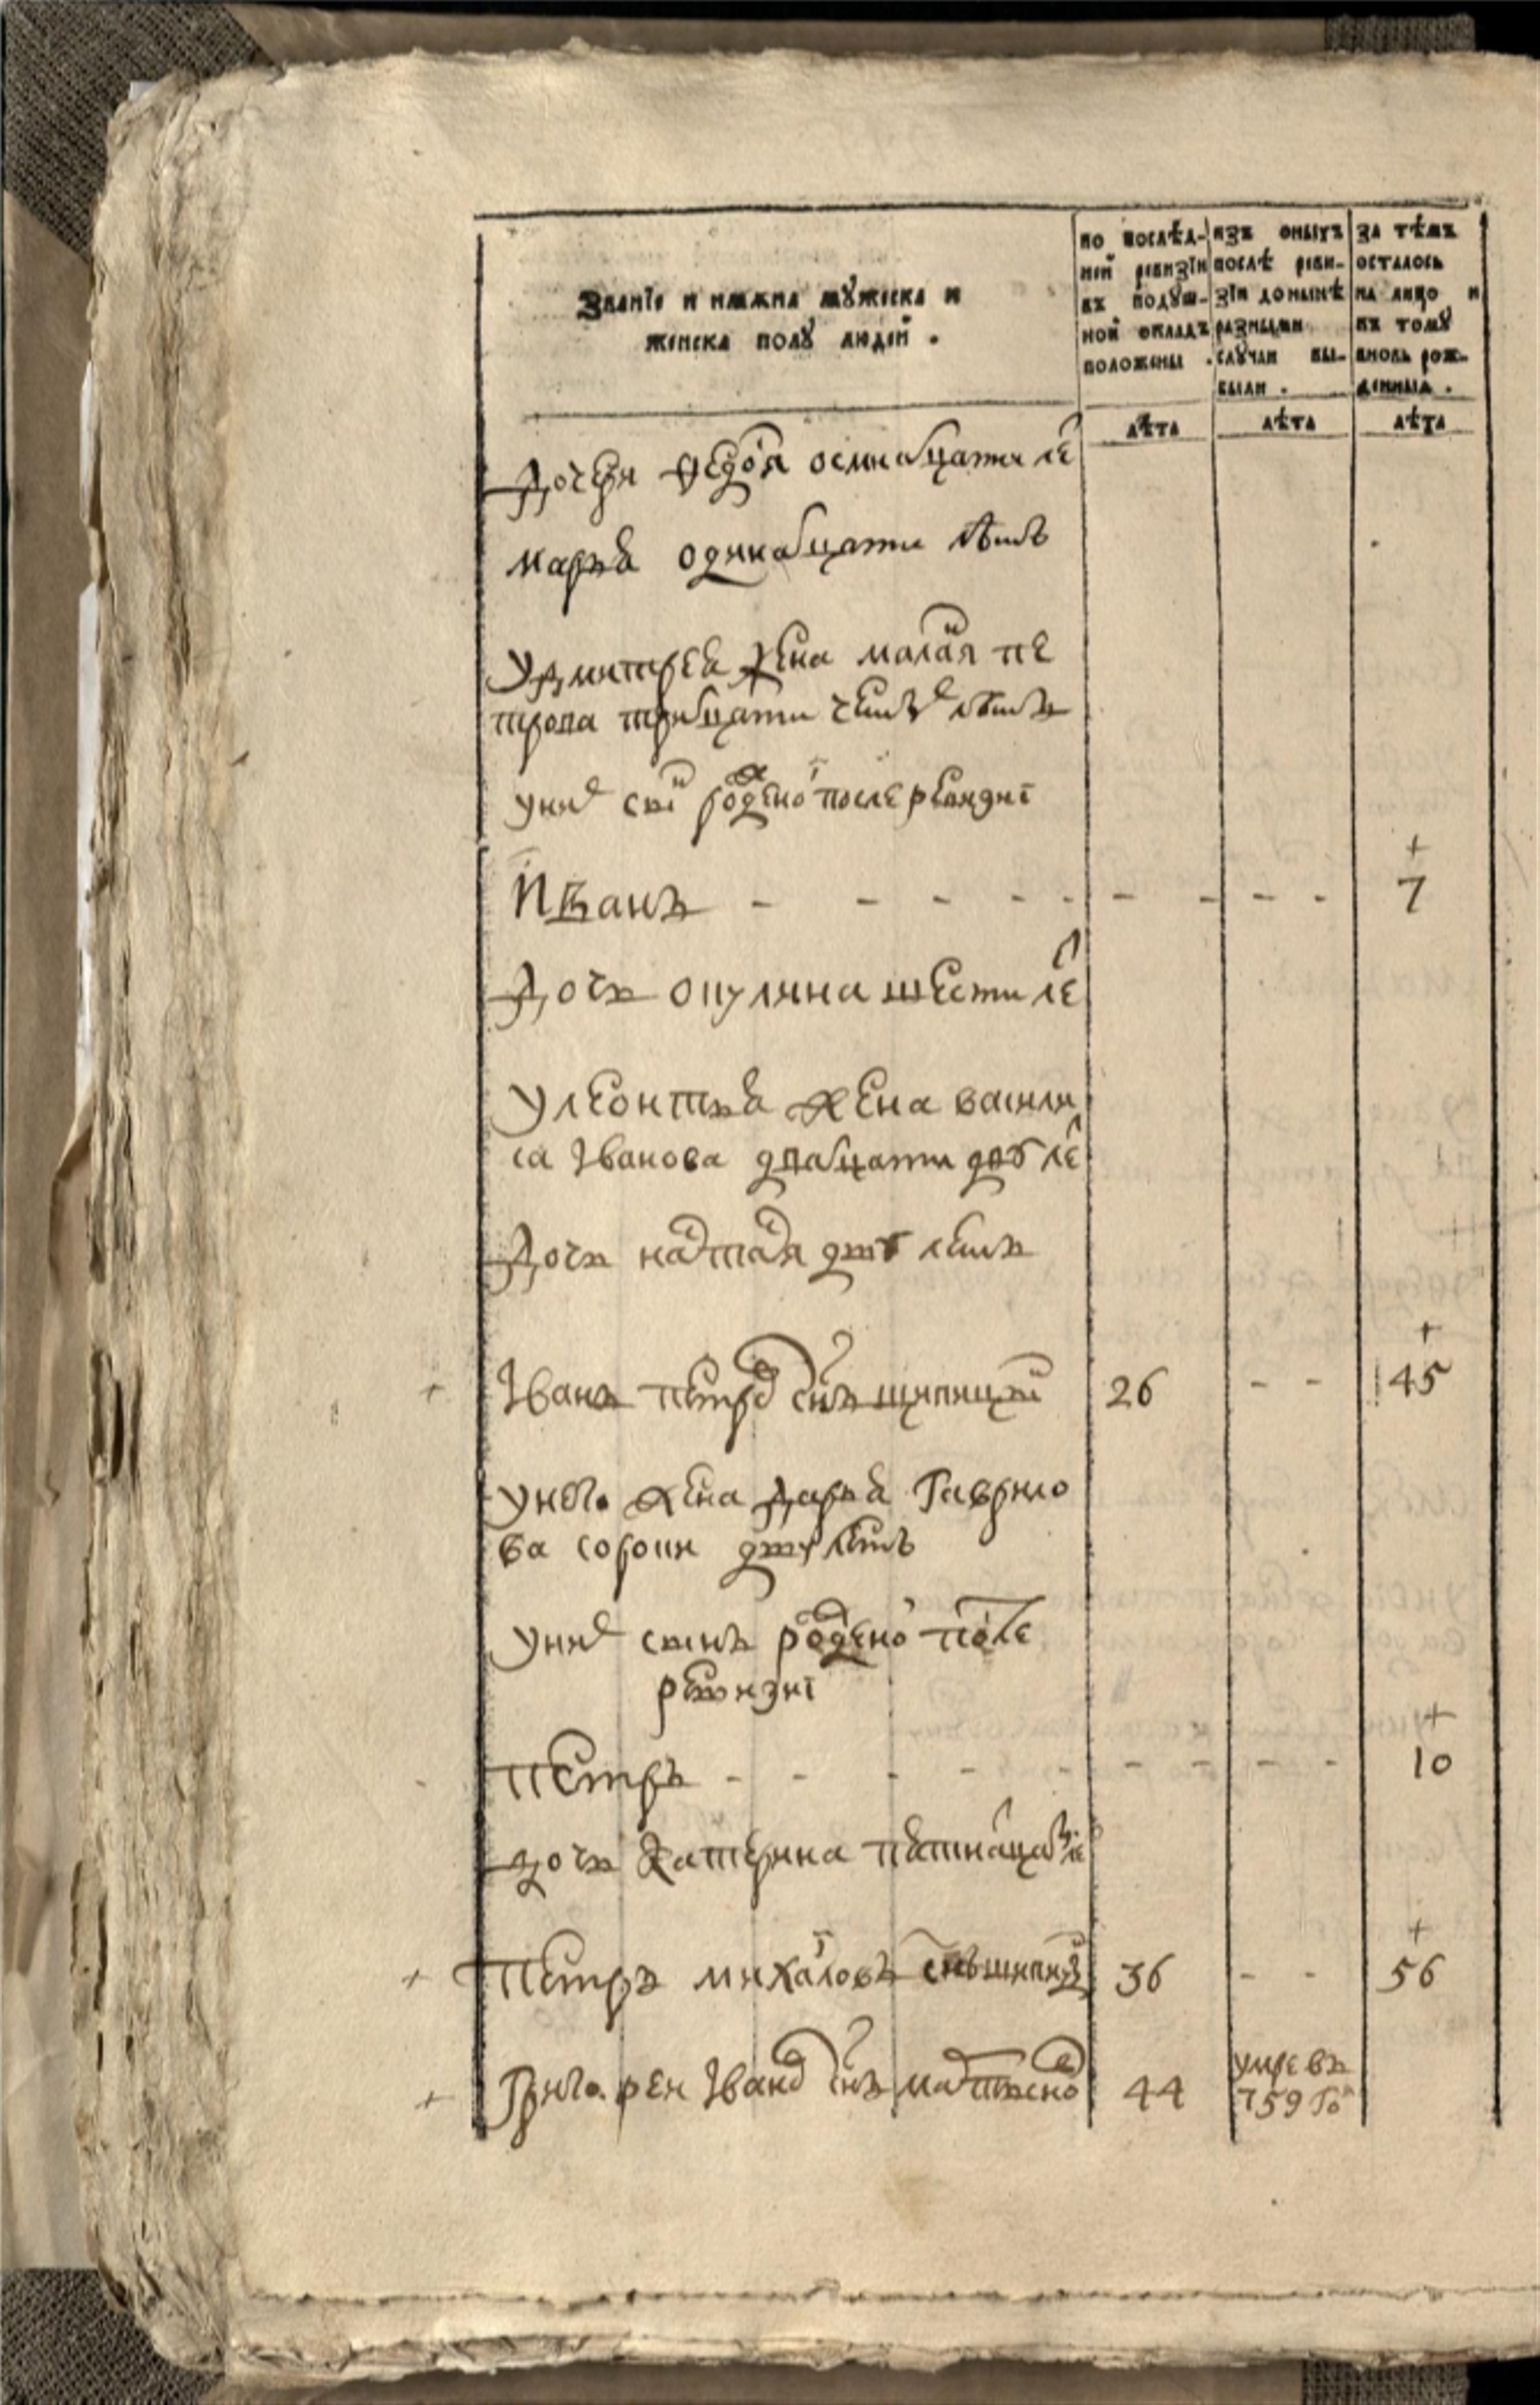 Званїе и имѧна мꙋжеска и
женска полꙋ людей .
по послѣд-
ней ревизїи
въ подꙋш-
ной окладъ
положены .
изъ оныхъ
послѣ реви-
зїи донынѣ
разными
слꙋчаи вы-
были .
за тѣмъ
осталось
на лицо и
къ томꙋ
вновь рож-
денныѧ .
лѣта лѣта лѣта
дочеря федоя осмнатцати ле
марья одинатцати летъ
у дмитрея жена малая пе
трова тритцати четырех летъ
у них сын рожденой после ревизиі
Иванъ - - - - - - - - 7
дочь окулина шести ле
у леонтья жена васили
са Иванова дватцати дву ле
дочь наталя дву летъ
Іванъ петров снъ щипицын 26 - - 45
у него жена дарья Гаврило
ва сорони дву летъ
у них сынъ рожденой после
ревизиі
петръ - - - - - - - - 10
дочь катерина пятнатцат ле
петръ михаловъ снъ 36 - - 56
Григорей Іванов снъ 44 умре въ
759 го